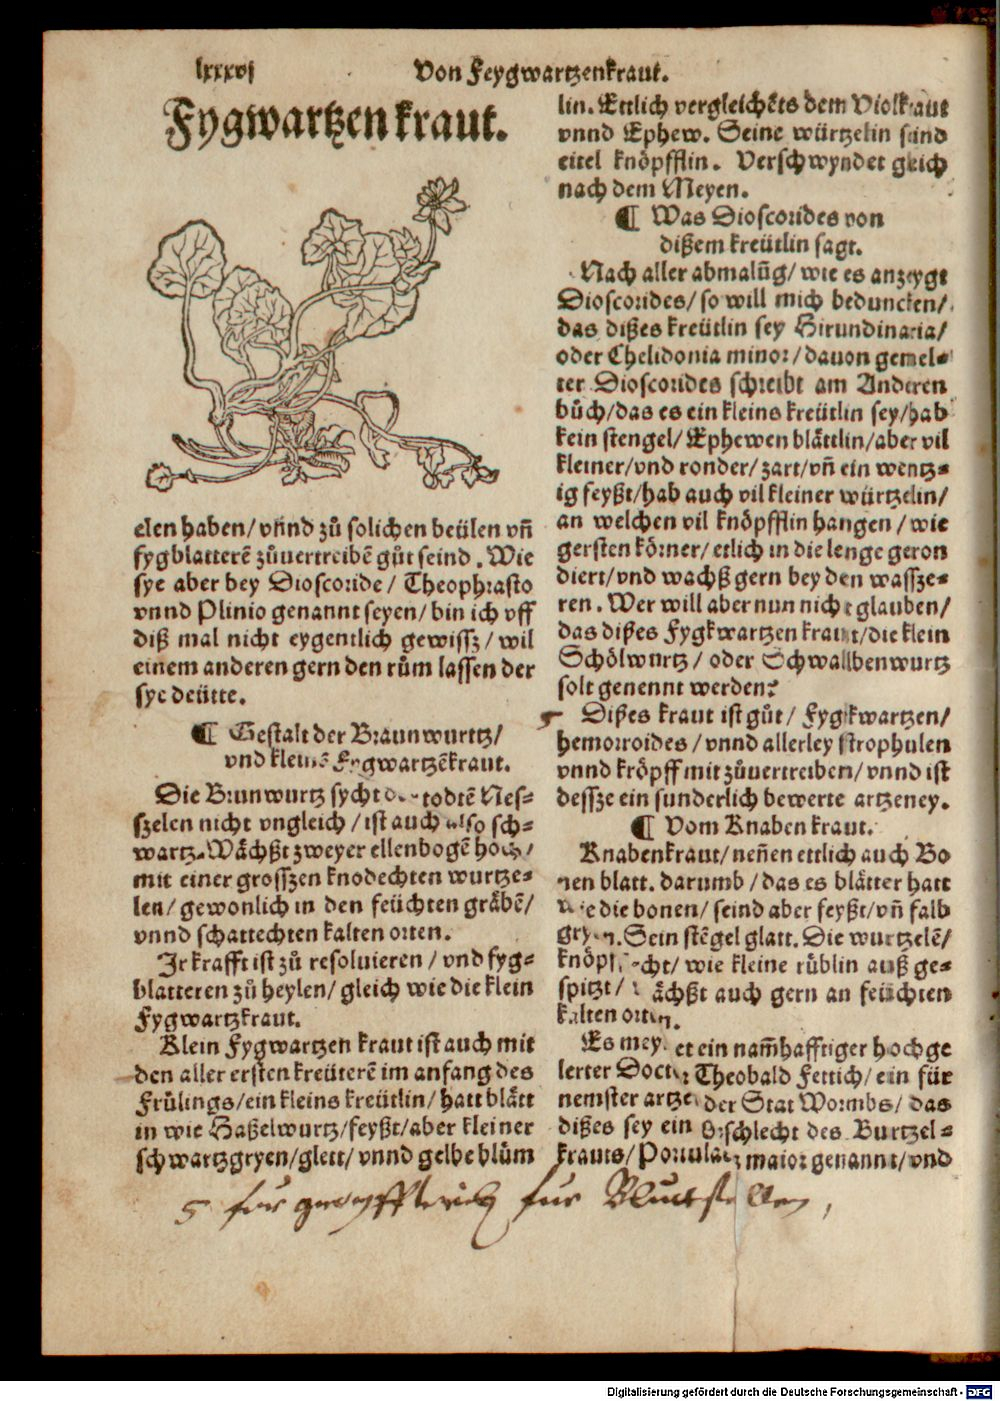 lxxxvj
Von Feygwartzenkraut.
Fygwartzen kraut.
elen haben/ vñnd zů solichen beülen vñ
fygblatterē zůuertreibē gůt seind. Wie
sye aber bey Dioscoride/ Theophrasto
vnnd Plinio genannt seyen/ bin ich vff
diß mal nicht eygentlich gewissz/ wil
einem anderen gern den rům lassen der
sye deütte.
¶ Gestalt der Braunwurtz/
vnd kleinē Fygwartzēkraut.
Die Brunwurtz sycht todtē Nes-
szelen nicht vngleich/ ist auch also sch-
wartz. Wächßt zweyer ellenbogē hoch/
mit einer grosszen knodechten wurtze-
len/ gewonlich in den feüchten gräbē/
vnnd schattechten kalten orten.
Ir krafft ist zů resoluieren/ vnd fyg-
blatteren zů heylen/ gleich wie die klein
Fygwartzkraut.
Klein Fygwartzen kraut ist auch mit
den aller ersten kreüterē im anfang des
Frülings/ ein kleins kreütlin/ hatt blätt
in wie Haßelwurtz/ feyßt/ aber kleiner
schwartzgryen/ glett/ vnnd gelbe blüm
lin. Ettlich vergleichēts dem Violkraut
vnnd Ephew. Seine würtzelin sind
eitel knöpfflin. Verschwyndet gleich
nach dem Meyen.
¶ Was Dioscorides von
dißem kreütlin sagt.
Nach aller abmalũg/ wie es anzeygt
Dioscorides/ so will mich beduncken/
das dißes kreütlin sey Hirundinaria/
oder Chelidonia minor/ dauon gemel-
ter Dioscorides schreibt am Anderen
bůch/ das es ein kleins kreütlin sey/ hab
kein stengel/ Ephewen blättlin/ aber vil
kleiner/ vnd ronder/ zart/ vñ ein wentz-
ig feyßt/ hab auch vil kleiner würtzelin/
an welchen vil knöpfflin hangen/ wie
gersten körner/ etlich in die lenge geron
diert/ vnd wachß gern bey den wassze-
ren. Wer will aber nun nicht glauben/
das dißes Fygkwartzen kraut/ die klein
Schölwurtz/ oder Schwallbenwurtz
solt genennt werden?
Dißes kraut ist gůt/ Fygkwartzen/
hemorroides/ vnnd allerley strophulen
vnnd kröpff mit zůuertreiben/ vnnd ist
dessze ein sunderlich bewerte artzeney.
¶ Vom Knaben kraut.
Knabenkraut/ neñen ettlich auch Bo
nen blatt. darumb/ das es blätter hatt
wie die bonen/ seind aber feyßt/ vñ falb
gryen. Sein stēgel glatt. Die wurtzelē/
knöpffecht/ wie kleine rüblin auß ge-
spitzt/ wächßt auch gern an feüchten
kalten orten.
Es meynet ein nam̄hafftiger hochge
lerter Doctor Theobald Fettich/ ein für
nemster artzet der Stat Wormbs/ das
dißes sey ein Geschlecht des Burtzel-
krauts/ Portulaca maior genannt/ vnd
für für